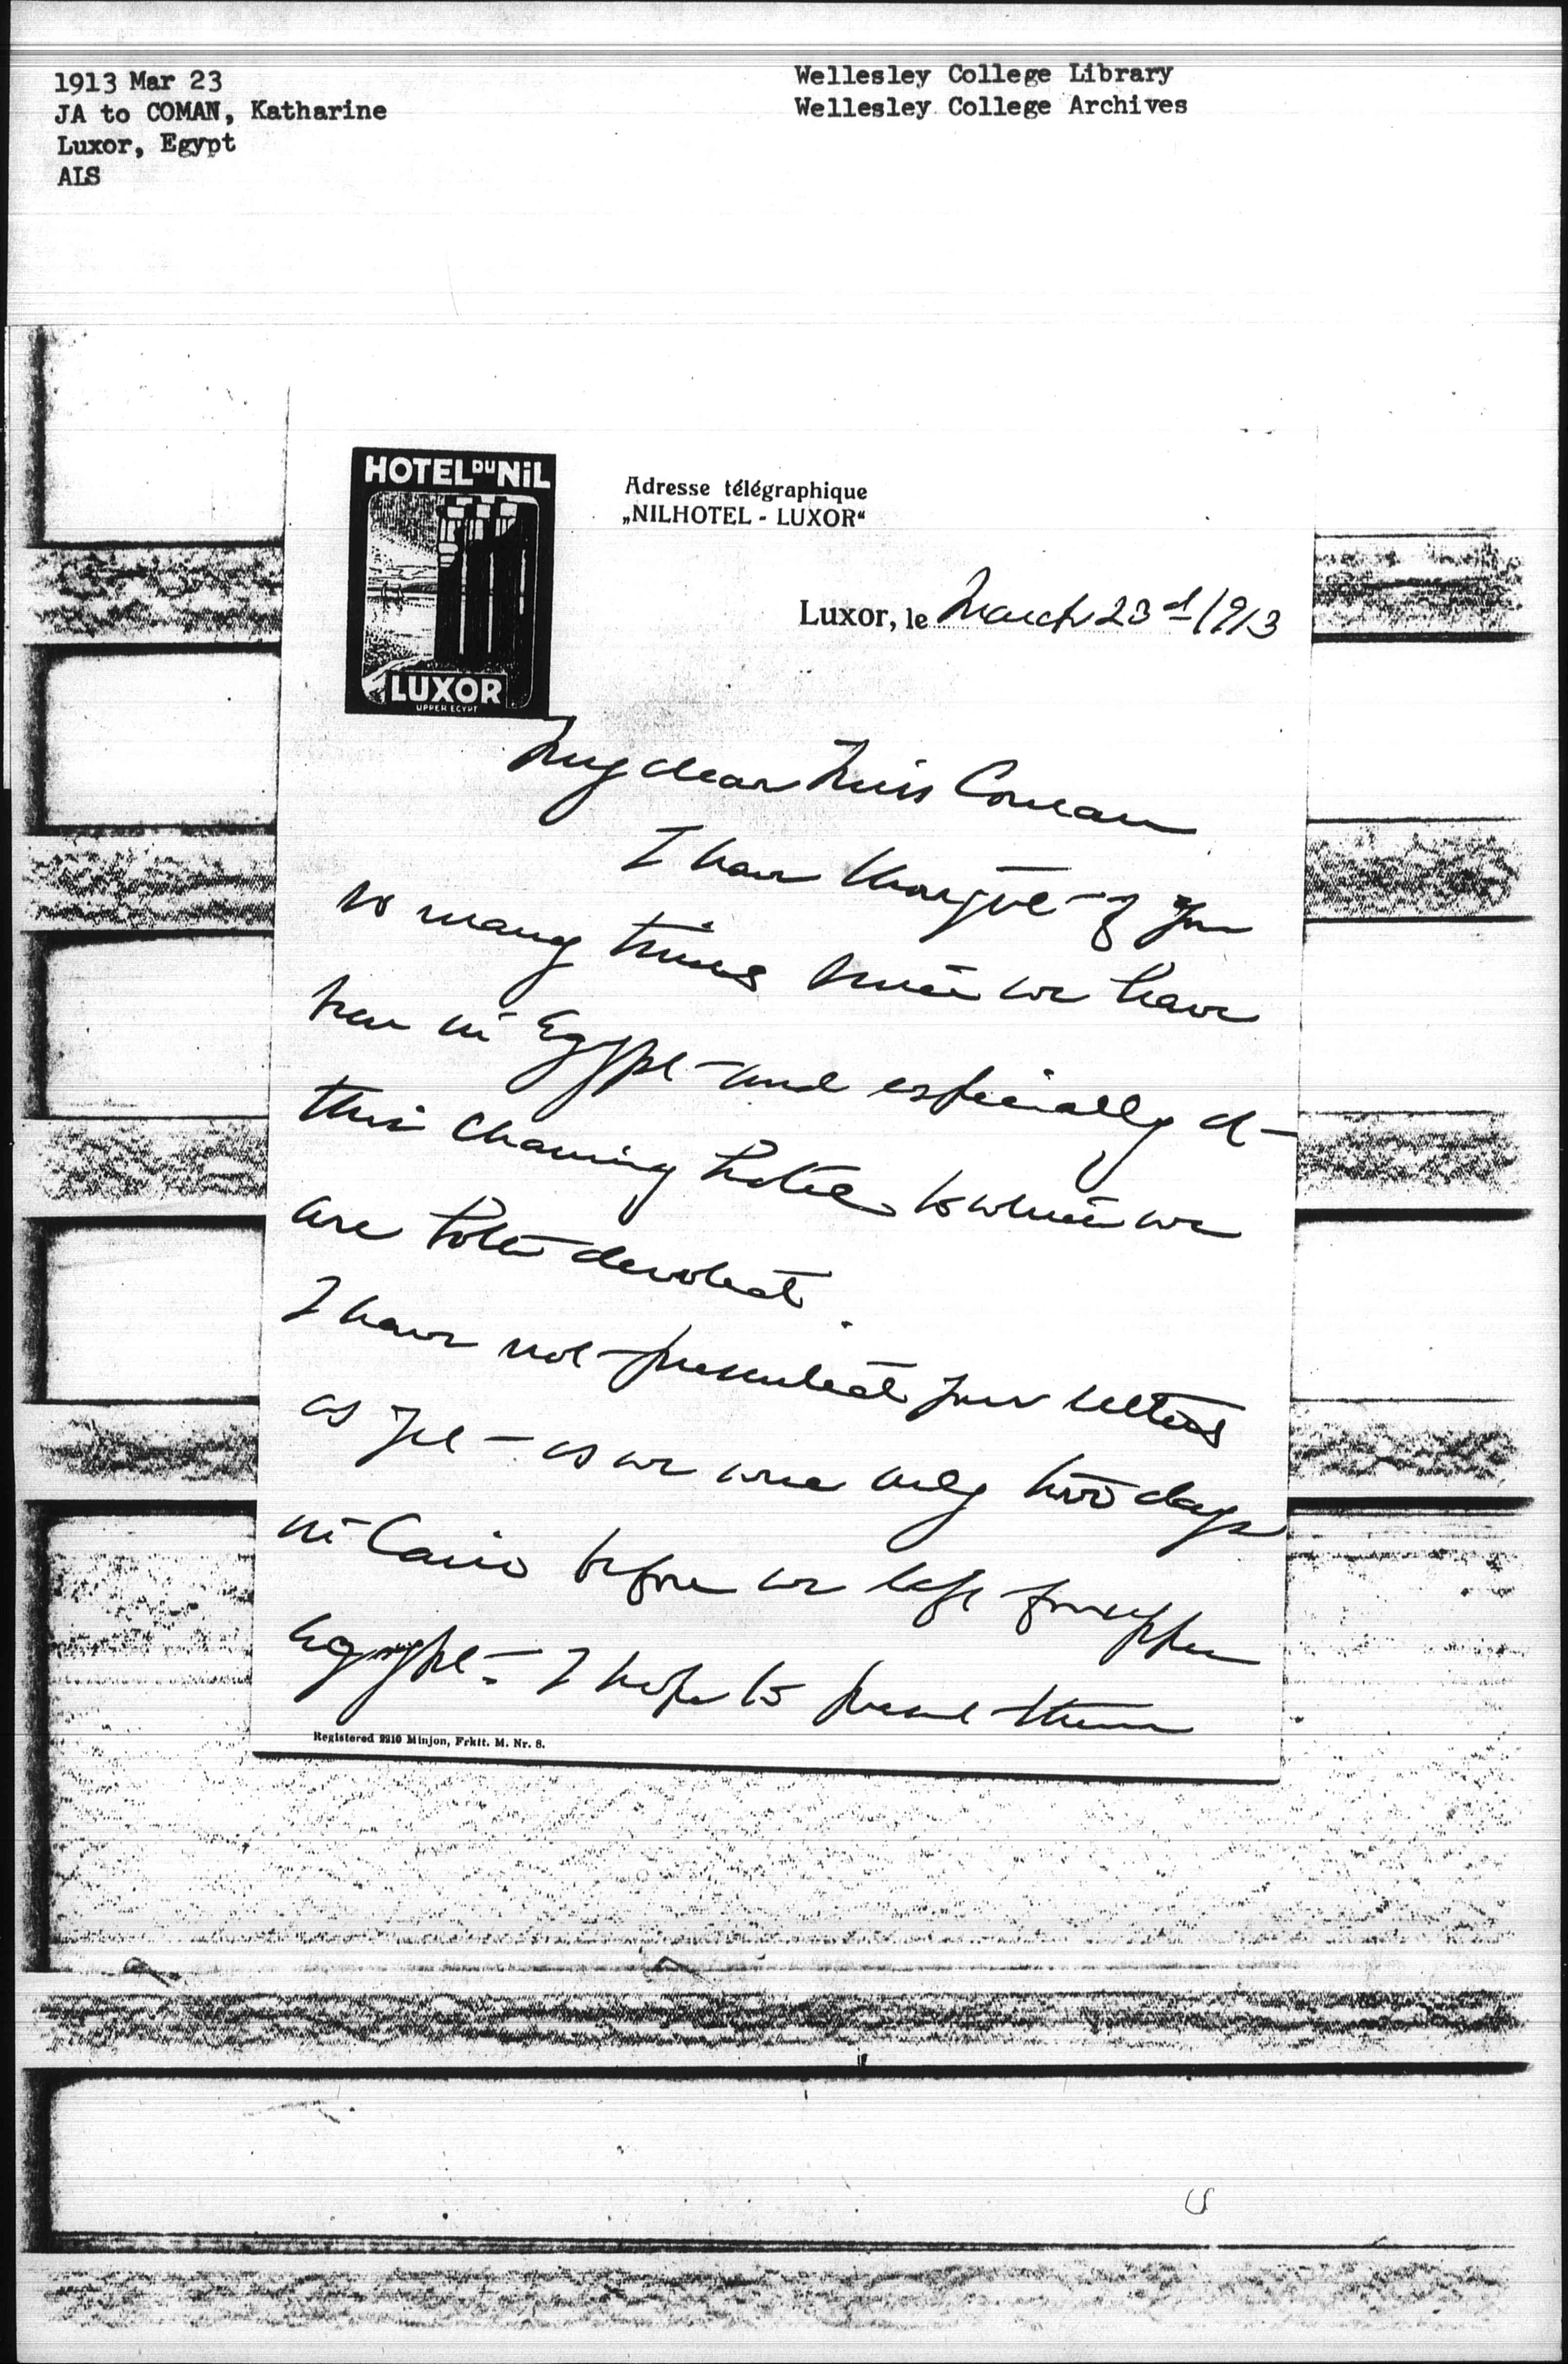 1913 Mar 23
JA to COMAN, Katharine
Luxor, Egypt
ALS
Wellesley College Library
Wellesley College Archives
HOTEL DU NIL
LUXOR
UPPER EGYPT
Adresse télégraphique
„NILHOTEL - LUXOR“
Luxor, le March 23d 1913
My dear Miss Coman
I have thought of you
so many times since we have
been in Egypt and especially at
this charming hotel to which we
are both devoted.
I have not presented your letters
as yet - as we were only two days
in Cairo before we left for upper
Egypt - I hope to present them
Registered 2210 Minjon, Frkft. M. Nr. 8.